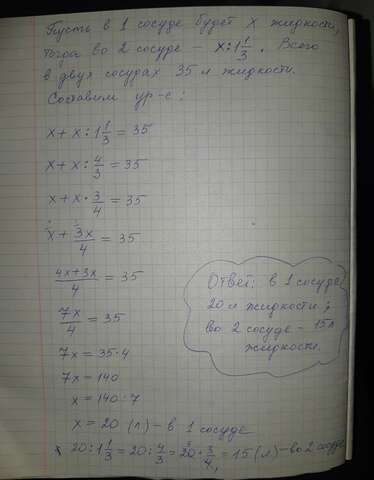 Пусть в 1 сосуде будет x жидкости,
тогда во 2 сосуде – x : 1 1/3. Всего
в двух сосудах 35 л жидкости.
Составим ур-е:
x + x : 1 1/3 = 35
x + x : 4/3 = 35
x + x · 3/4 = 35
x + 3x/4 = 35
4x+3x/4 = 35
7x/4 = 35
7x = 35·4
7x = 140
x = 140 : 7
x = 20 (л) – в 1 сосуде
20 : 1 1/3 = 20 : 4/3 = 20 · 3/4 = 15 (л) – во 2 сосуде
Ответ: в 1 сосуде
20 л жидкости;
во 2 сосуде – 15 л
жидкости.